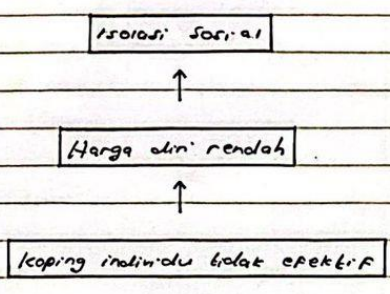 Isolasi Sosial
Harga diri rendah
Koping individu tidak efektif